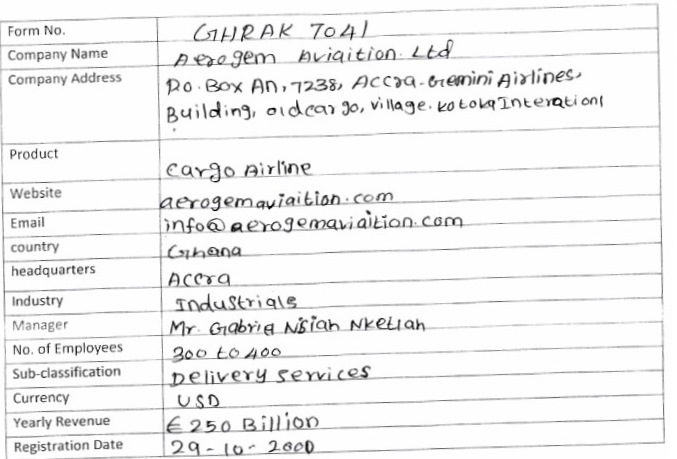 Form No. GHRAK 7041
Company Name Aerogem Aviaition. Ltd
Company Address P.O. Box An, 7238, Accra-Gremini Airlines,
Building, oldcargo, village. kotoka Interationl
Product Cargo Airline
Website aerogemaviaition.com
Email info@aerogemaviaition.com
country Ghana
headquarters Accra
Industry Industrials
Manager Mr. Gabria Nsiah Nketiah
No. of Employees 300 to 400
Sub-classification Delivery services
Currency USD
Yearly Revenue € 250 Billion
Registration Date 29-10-2000